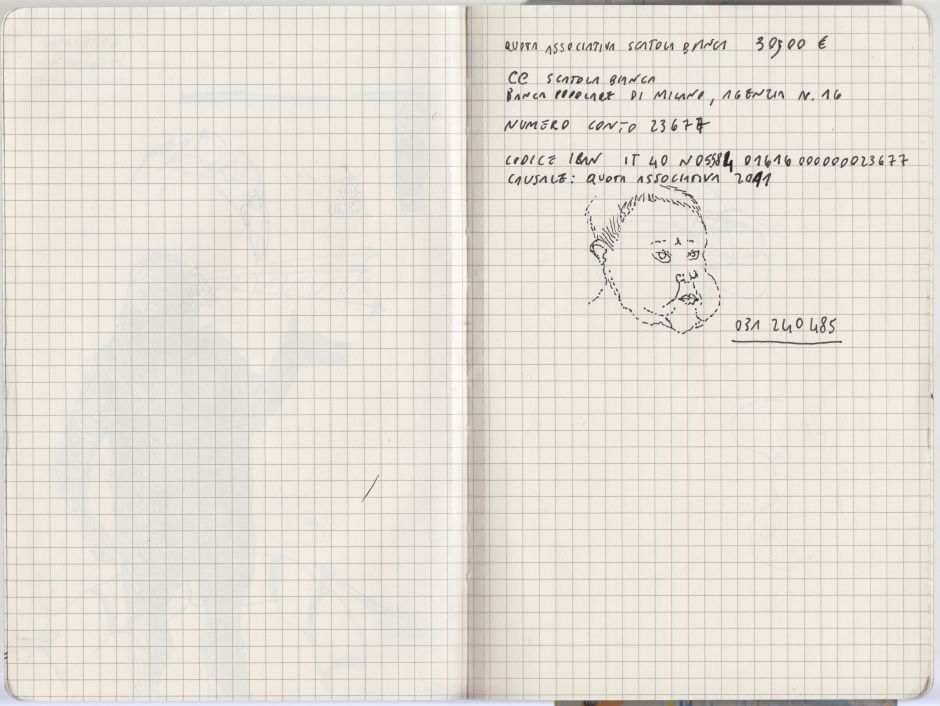 QUOTA ASSOCIATIVA SCATOLA BIANCA 30,00 €
CC SCATOLA BIANCA
BANCA POPOLARE DI MILANO, AGENZIA N. 16
NUMERO CONTO 23677
CODICE IBAN IT 40 N05584 01616 000000023677
CAUSALE: QUOTA ASSOCIATIVA 2011
031 240 485